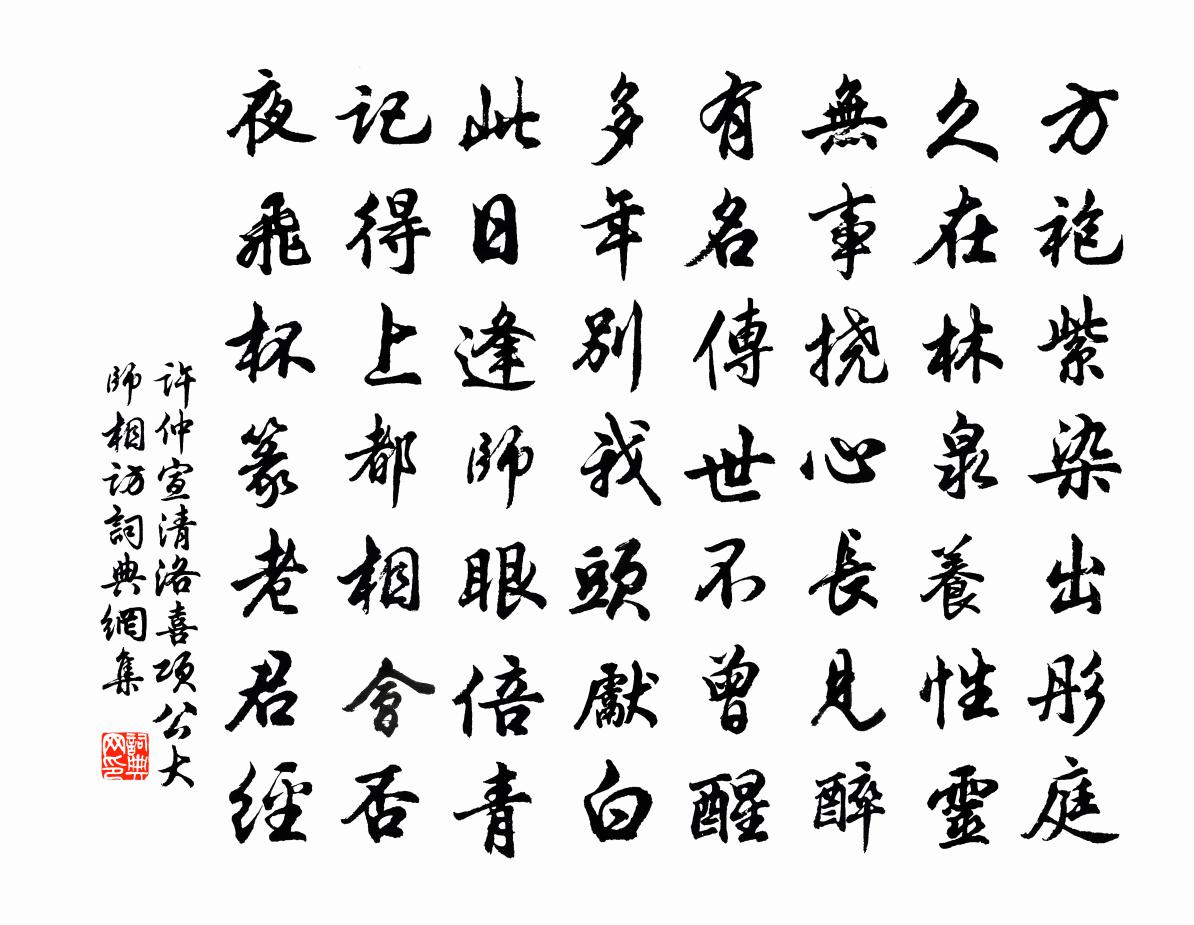 方袍紫染出彤庭
久在林泉養性靈
無事撓心長見醉
有名傳世不曾醒
多年別我頭獻白
此日逢師眼倍青
記得上都相會否
夜飛杯篆老君經
許仲宣清洛喜項公大
師相訪詞典網集
詞典网印